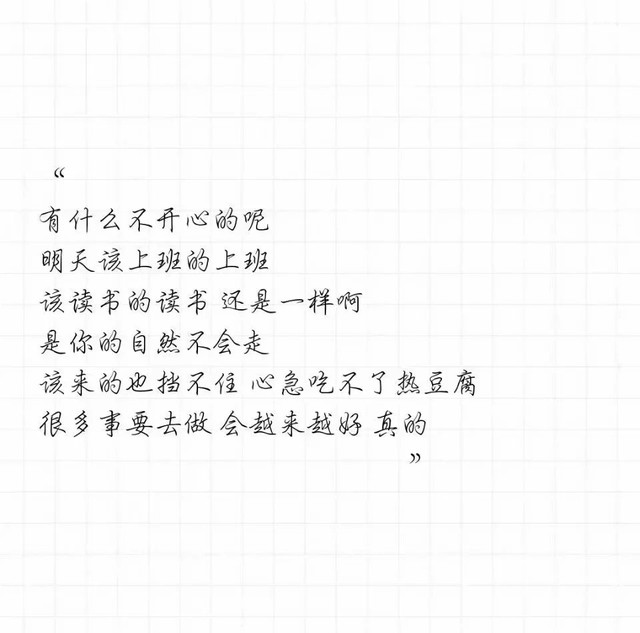 “
有什么不开心的呢
明天该上班的上班
该读书的读书 还是一样啊
是你的自然不会走
该来的也挡不住 心急吃不了热豆腐
很多事要去做 会越来越好 真的
”